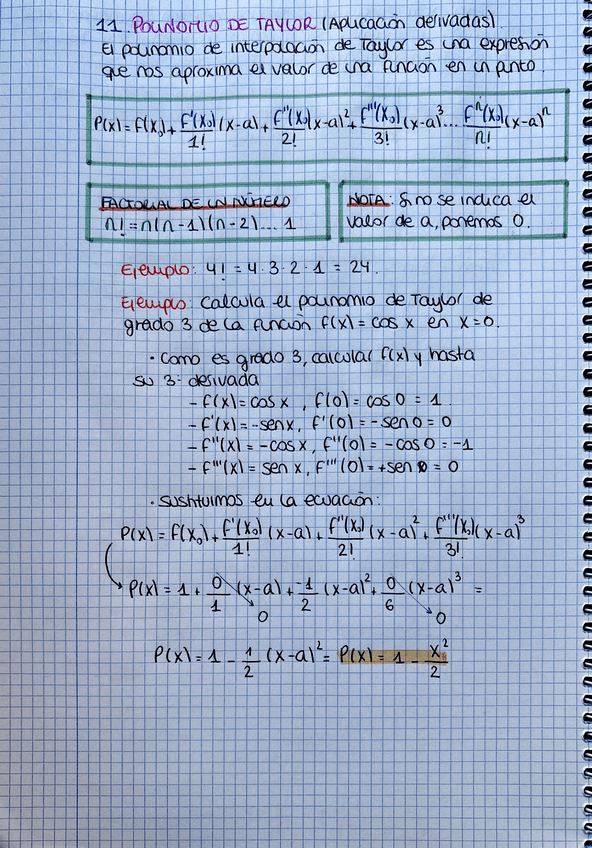 11. POLINOMIO DE TAYLOR (Aplicación derivadas).
El polinomio de interpolación de Taylor es una expresión
que nos aproxima el valor de una función en un punto.
P(x) = f(x₀) + f'(x₀)/1! (x-a) + f''(x₀)/2! (x-a)² + f'''(x₀)/3! (x-a)³ ... fⁿ(x₀)/n! (x-a)ⁿ
FACTORIAL DE UN NÚMERO
n! = n(n-1)(n-2)... 1
NOTA: Si no se indica el
valor de a, ponemos 0.
Ejemplo: 4! = 4·3·2·1 = 24.
Ejemplo: Calcula el polinomio de Taylor de
grado 3 de la función f(x) = cos x en x=0.
· Como es grado 3, calcular f(x) y hasta
su 3ª derivada
- f(x) = cos x , f(0) = cos 0 = 1.
- f'(x) = -sen x, f'(0) = - sen 0 = 0
- f''(x) = -cos x, f''(0) = -cos 0 = -1
- f'''(x) = sen x, f'''(0) = +sen 0 = 0
· Sustituimos en la ecuación:
P(x) = f(x₀) + f'(x₀)/1! (x-a) + f''(x₀)/2! (x-a)² + f'''(x₀)/3! (x-a)³
P(x) = 1 + 0/1 (x-a) + -1/2 (x-a)² + 0/6 (x-a)³ =
0 0
P(x) = 1 - 1/2 (x-a)² = P(x) = 1 - x²/2